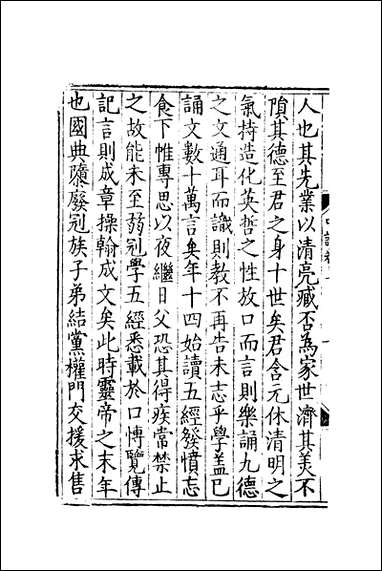 人也其先業以清亮臧否為家世濟其美不
隕其德至君之身十世矣君含元休清明之
氣持造化英哲之性放口而言則樂誦九德
之文通耳而識則教不再告未志乎學蓋已
誦文數十萬言矣年十四始讀五經發憤忘
食下帷專思以夜繼日父恐其得疾常禁止
之故能未至弱冠學五經悉載於口博覽傳
記言則成章操翰成文矣此時靈帝之末年
也國典隳廢冠族子弟結黨權門交援求售